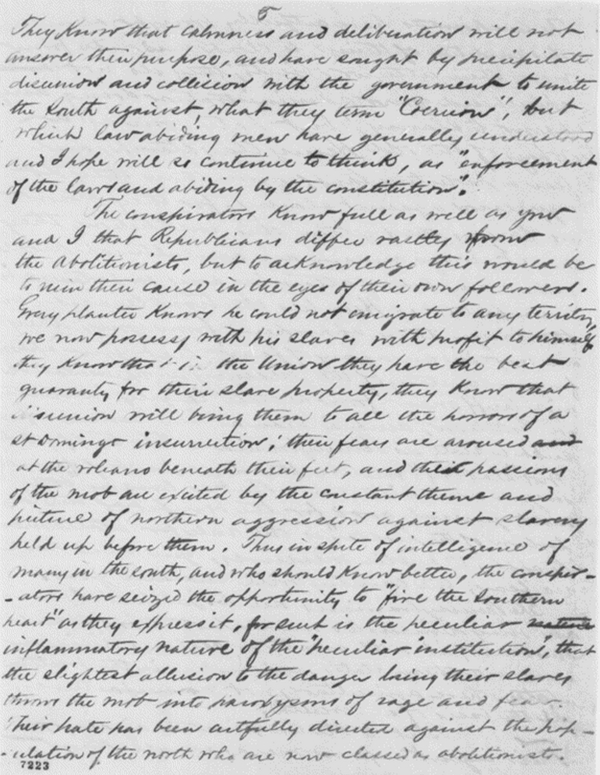 5
They know that calmness and deliberation will not
answer their purpose, and have sought by precipitate
disunion and collision with the government to unite
the South against, what they term "Coercion", but
which law abiding men have generally understood
and I hope will so continue to think, as "enforcement
of the laws and abiding by the constitution".
The conspirators know full as well as you
and I that Republicans differ vastly from
the Abolitionists, but to acknowledge this would be
to ruin their cause in the eyes of their own followers.
Every planter knows he could not imigrate to any territory
we now possess with his slaves with profit to himself
they know that in the Union they have the best
guaranty for their slave property, they know that
disunion will bring them to all the horrors of a
St Domingo insurrection; their fears are aroused and
at the volcano beneath their feet, and the passions
of the mob are excited by the constant theme and
picture of northern aggression against slavery
held up before them. Thus in spite of intelligence of
many in the south, and who should know better, the conspir-
-ators have seized the opportunity to "fire the Southern
heart" as they express it, for such is the peculiar nature
inflammatory nature of the "peculiar institution", that
the slightest allusion to the danger being their slaves
throws the mob into paroxysms of rage and fear.
Their hate has been artfully directed against the pop-
-ulation of the north who are now classed as abolitionists.
7223